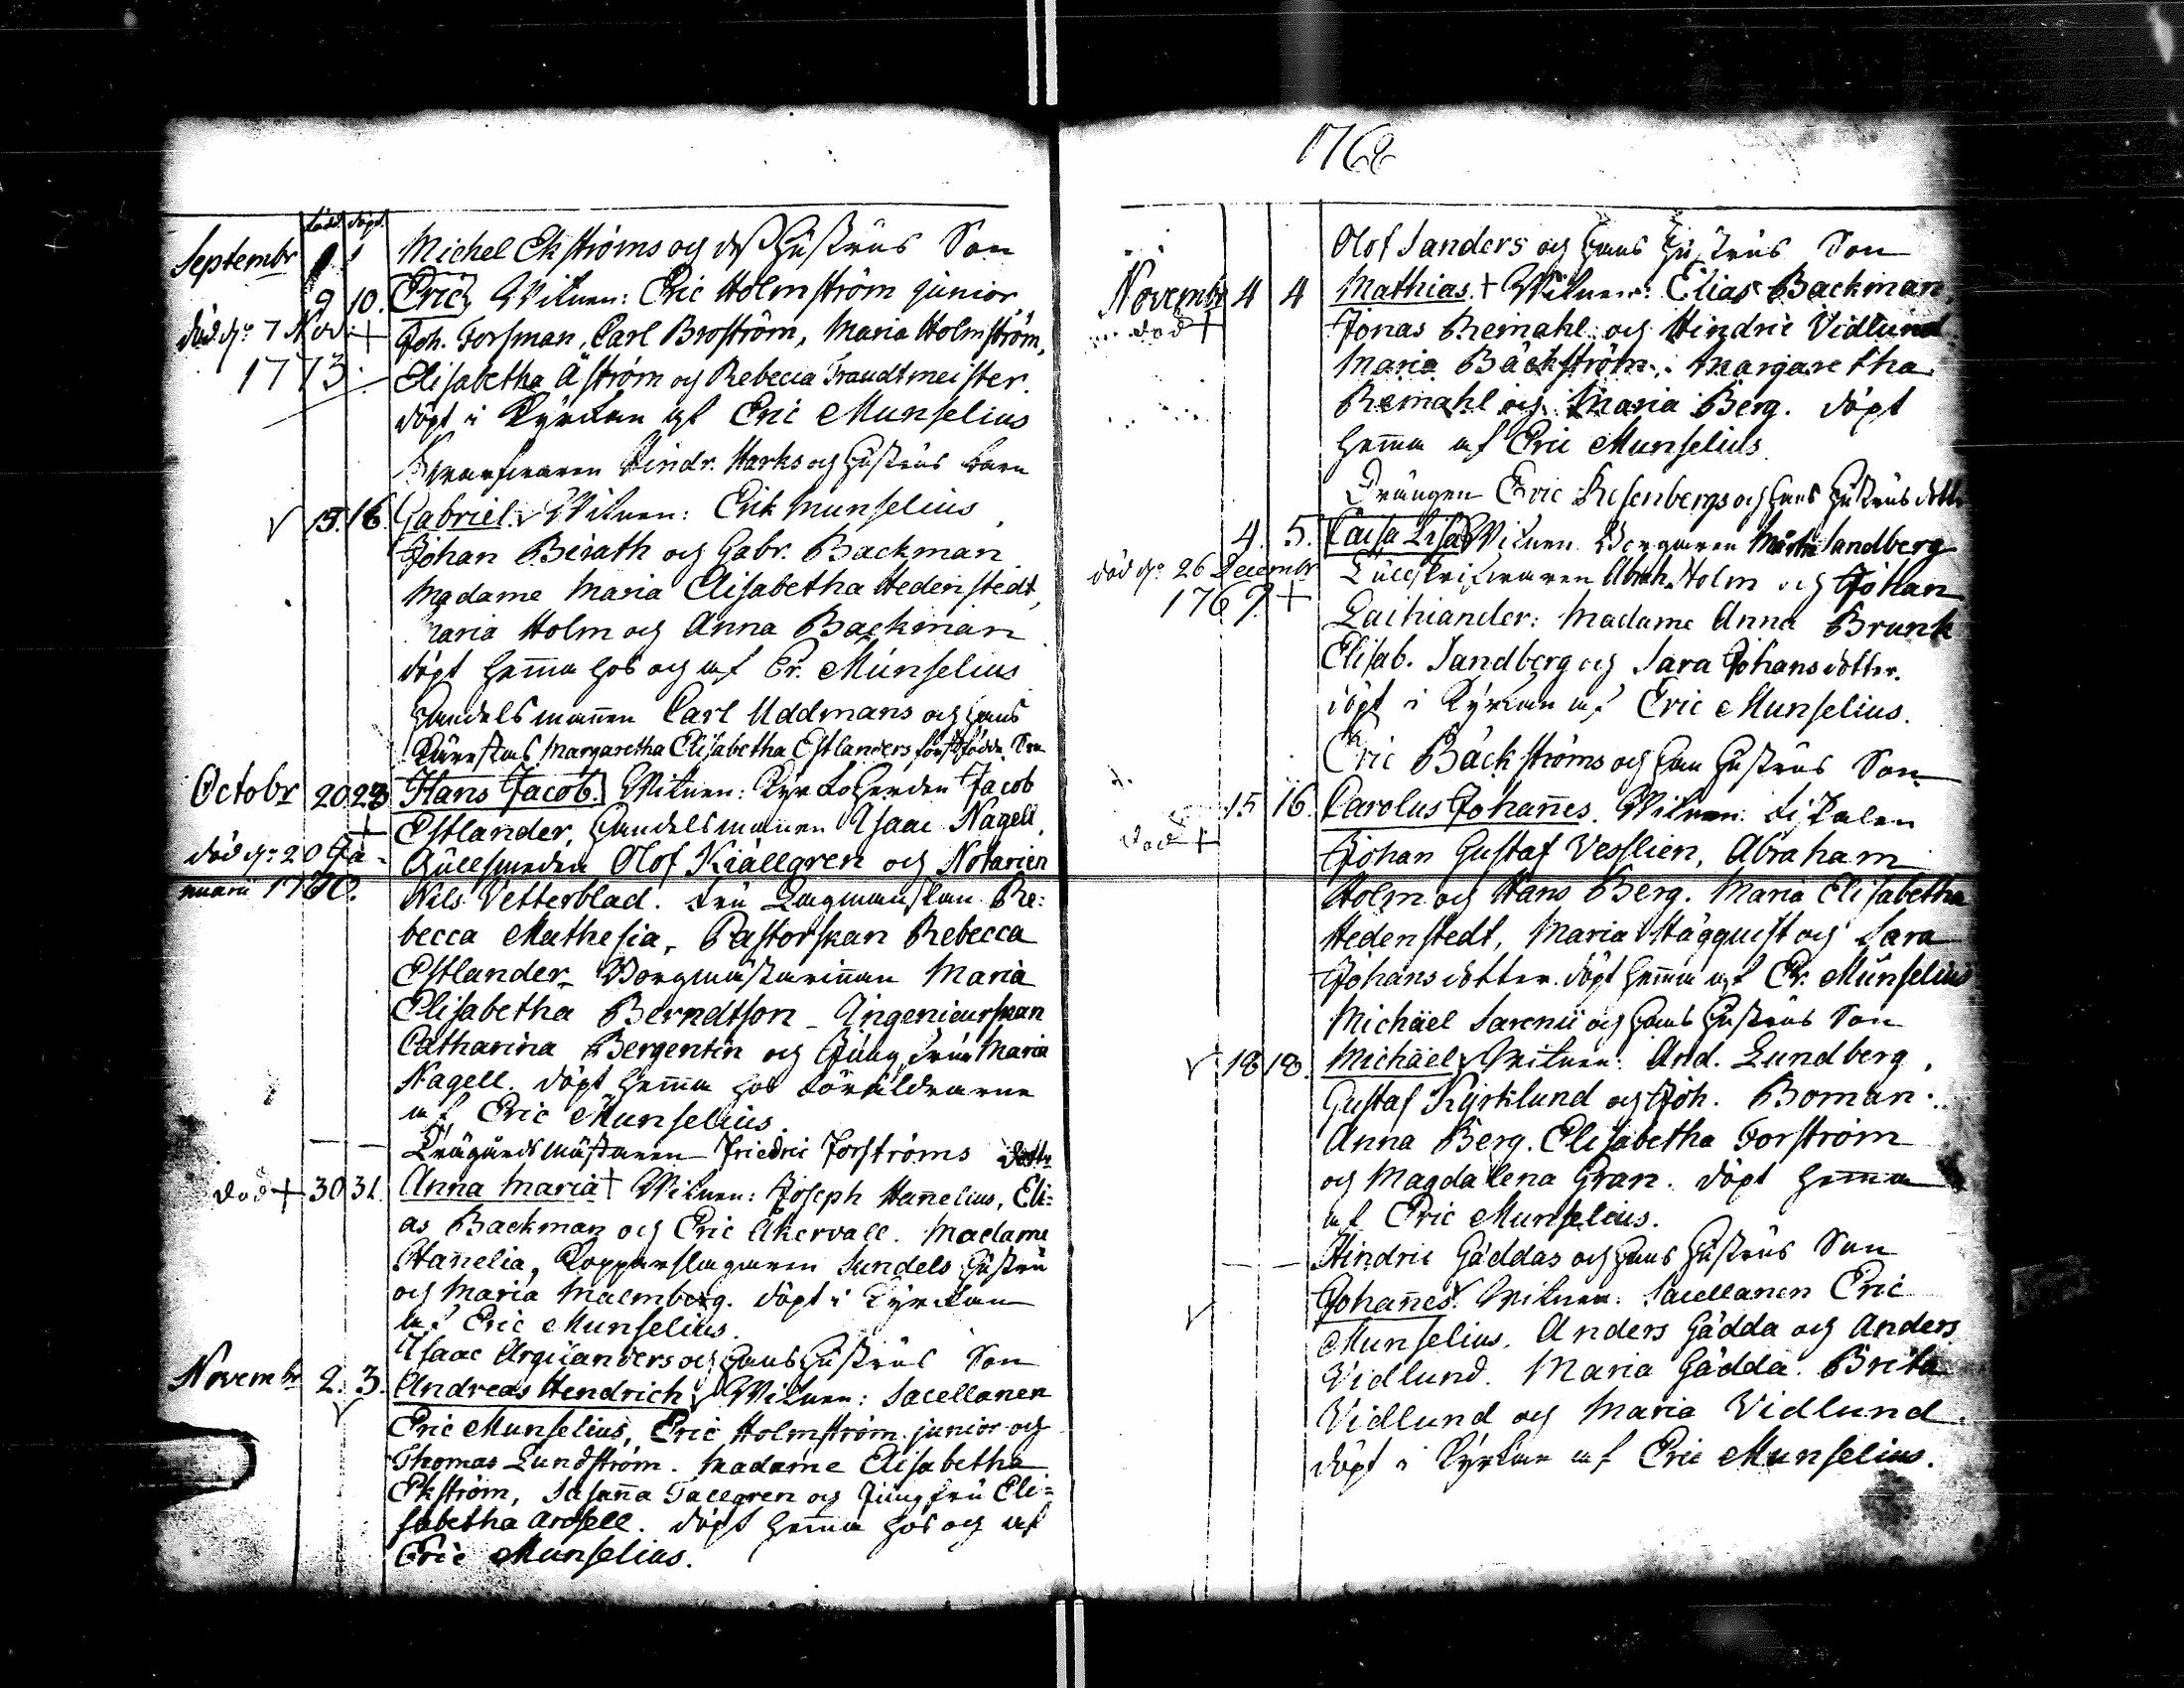 född döpt
Septembr
Michel Ekströms och dess Hustrus Son
9 10. Eric, Vitnen: Eric Holmström junior
död d. 7 Nov. + Joh. Forsman, Carl Broström, Maria Holmström,
1773. Elisabetha Åström och Rebecca Traudtmeister.
döpt i Kyrckan af Eric Munselius
Hindr. Harks och Hustrus barn
15. 16. Gabriel. Vitnen: Erik Munselius,
Johan Beiath och Gabr. Backman
Madame Maria Elisabetha Hedenstedt,
Maria Holm och Anna Backman
döpt hema hos och af Er. Munselius
Handelsmannen Carl Uddmans och hans
Kärestas Margaretha Elisabetha Estlanders förstfödde Son
Octobr 20 23 Hans Jacob. Vitnen: Kyrkoherden Jacob
+ Estlander, Handelsmannen Isaac Nagell,
död d. 20 Ja- Gullsmeden Olof Kiällgren och Notarien
nuarii Nils Vetterblad. Fru Lagmanskan Re:
becca Mathesia, Pastorskan Rebecca
Estlander, Borgmästarinnan Maria
Elisabetha Berndtson, Ingenieurskan
Catharina Bergentin och Jungfru Maria
Nagell. döpt hema hos Föräldrarne
af Eric Munselius.
Trägårdsmästaren Friedric Forströms dotter
död + 30 31. Anna Maria + Vitnen: Joseph Hanelius, Eli:
as Backman och Eric Åkervall. Madame
Hanelia, Kopparslagaren Sundels Hustru
och Maria Malmberg. döpt i Kyrckan
af Eric Munselius.
Isaac Argillanders och hans Hustrus Son
Novembr 2. 3. Andreas Hendrich, Vitnen: Sacellanen
Eric Munselius, Eric Holmström junior och
Thomas Lundström. Madame Elisabetha
Ekström, Susanna Tallgren och Jungfru Eli=
sabetha Arosell. döpt hema hos och af
Eric Munselius.
Olof Sanders och hans Hustrus Son
Novembr 4 4 Mathias. + Vitnen: Elias Backman,
död + Jonas Reinahl och Hindric Vidlund
Maria Bäckström, Margaretha
Reinahl och Maria Berg. döpt
hema af Eric Munselius.
Drängen Eric Resenbergs och hans Hustrus dotter
4. 5. Caisa Lisa Vitnen Borgaren Sandberg
död d. 26 Decembr Abrah. Holm och Johan
+ Lachiander: Madame Anna Brunk
Elisab. Sandberg och Sara Johansdotter.
döpt i Kyrkan af Eric Munselius.
Eric Bäckströms och hans Hustrus Son
15 16. Carolus Johannes. Vitnen: Fiskalen
död + Johan Gustaf Vesslien, Abraham
Holm och Hans Berg. Maria Elisabetha
Hedenstedt, Maria Häggquist och Sara
Johansdotter. döpt hema af Er. Munselius
Michäel Sarenii och hans Hustrus Son
18 18. Michäel, Vitnen: And. Lundberg,
Gustaf Kyrklund och Joh. Boman.
Anna Berg. Elisabetha Forström
och Magdalena Gran. döpt hema
af Eric Munselius.
Hindric Gäddas och hans Hustrus Son
Johannes. Vitnen: Sacellanen Eric
Munselius. Anders Gädda och Anders
Vidlund. Maria Gädda. Brita
Vidlund och Maria Vidlund.
döpt i Kyrkan af Eric Munselius.